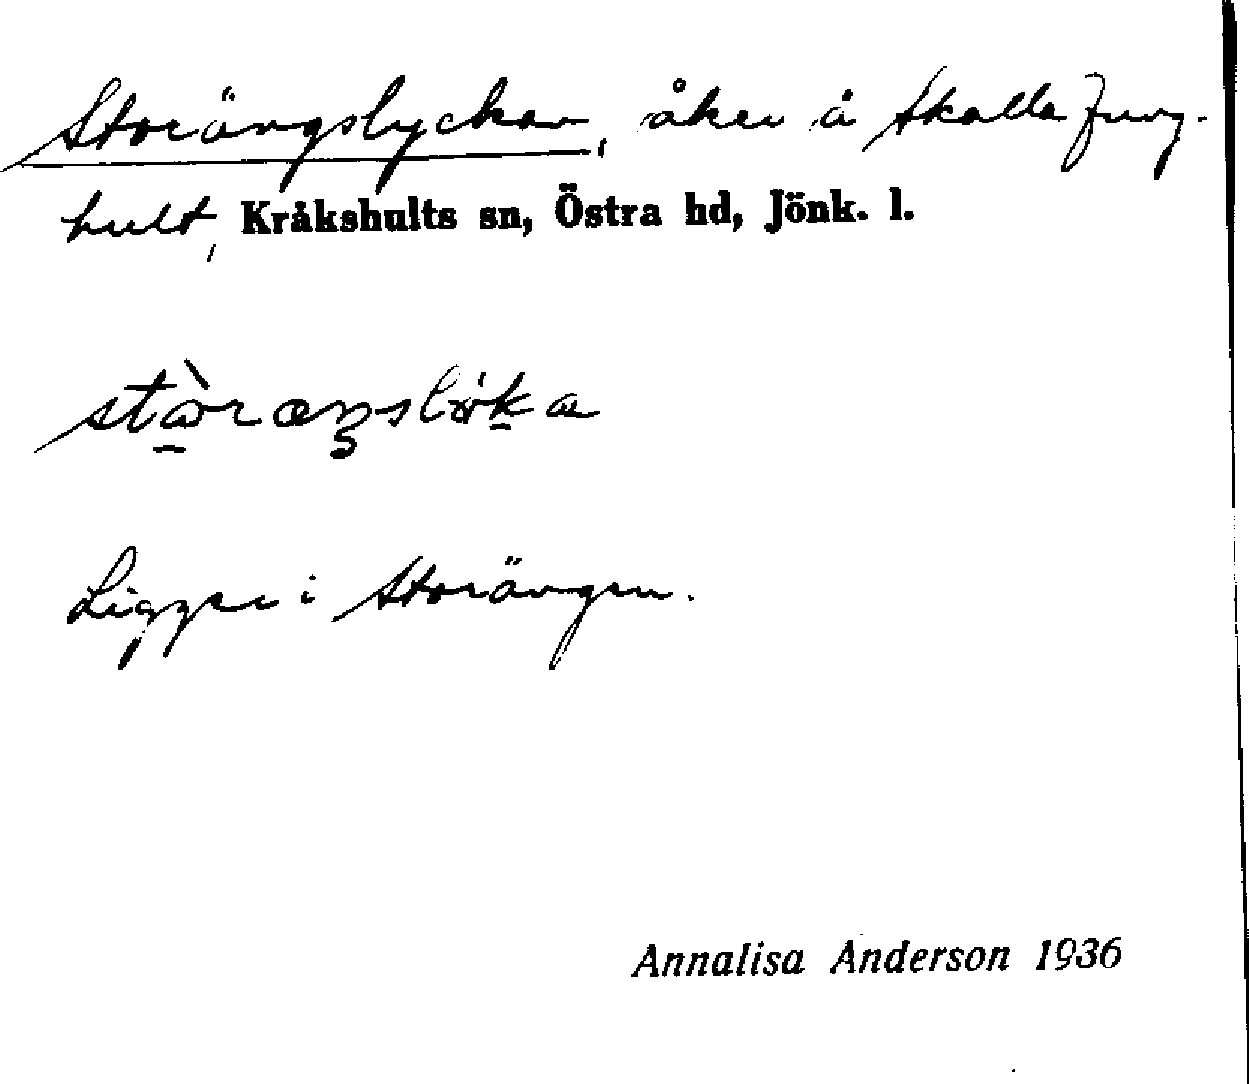 Storängslyckan, åker å Skalla Jung-
hult, Kråkshults sn, Östra hd, Jönk. l.
Ligger i Storängen.
Annalisa Anderson 1936